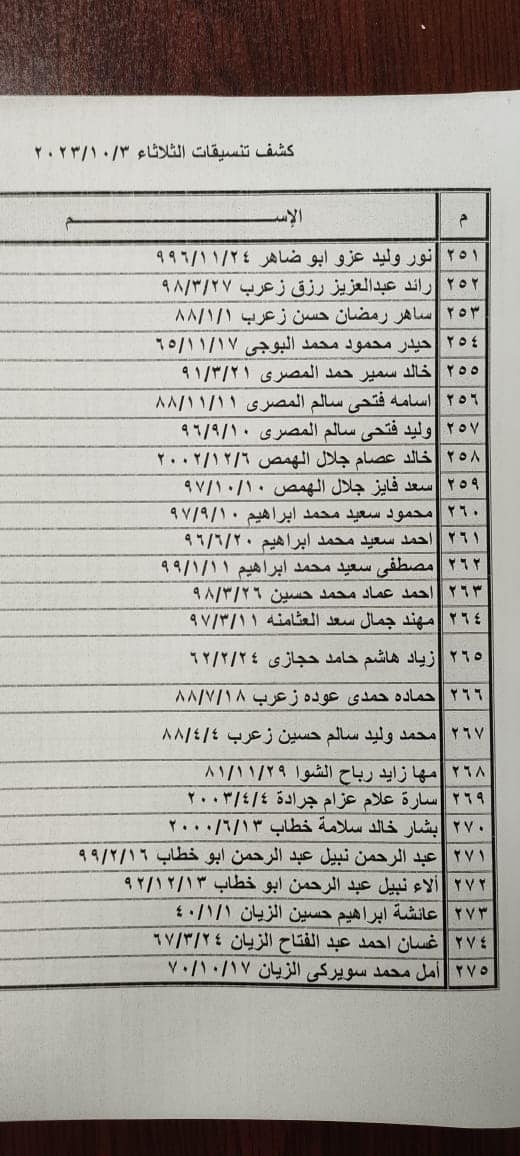 كشف تنسيقات الثلاثاء ٢٠٢٣/١٠/٣
م الإســــــــــــم
٢٥١ نور وليد عزو ابو ضاهر ٩٩٦/١١/٢٤
٢٥٢ رائد عبدالعزيز رزق زعرب ٩٨/٣/٢٧
٢٥٣ ساهر رمضان حسن زعرب ٨٨/١/١
٢٥٤ حيدر محمود محمد البوجى ٦٥/١١/١٧
٢٥٥ خالد سمير حمد المصرى ٩١/٣/٢١
٢٥٦ اسامه فتحى سالم المصرى ٨٨/١١/١١
٢٥٧ وليد فتحى سالم المصرى ٩٦/٩/١٠
٢٥٨ خالد عصام جلال الهمص ٢٠٠٢/١٢/٦
٢٥٩ سعد فايز جلال الهمص ٩٧/١٠/١٠
٢٦٠ محمود سعيد محمد ابراهيم ٩٧/٩/١٠
٢٦١ احمد سعيد محمد ابراهيم ٩٦/٦/٢٠
٢٦٢ مصطفى سعيد محمد ابراهيم ٩٩/١/١١
٢٦٣ احمد عماد محمد حسين ٩٨/٣/٢٦
٢٦٤ مهند جمال سعد العثامنه ٩٧/٣/١١
٢٦٥ زياد هاشم حامد حجازى ٦٢/٢/٢٤
٢٦٦ حماده حمدى عوده زعرب ٨٨/٧/١٨
٢٦٧ محمد وليد سالم حسين زعرب ٨٨/٤/٤
٢٦٨ مها زايد رباح الشوا ٨١/١١/٢٩
٢٦٩ سارة علام عزام جرادة ٢٠٠٣/٤/٤
٢٧٠ بشار خالد سلامة خطاب ٢٠٠٠/٦/١٣
٢٧١ عبد الرحمن نبيل عبد الرحمن ابو خطاب ٩٩/٢/١٦
٢٧٢ ألاء نبيل عبد الرحمن ابو خطاب ٩٢/١٢/١٣
٢٧٣ عائشة ابراهيم حسين الزيان ٤٠/١/١
٢٧٤ غسان احمد عبد الفتاح الزيان ٦٧/٣/٢٤
٢٧٥ أمل محمد سويركى الزيان ٧٠/١٠/١٧